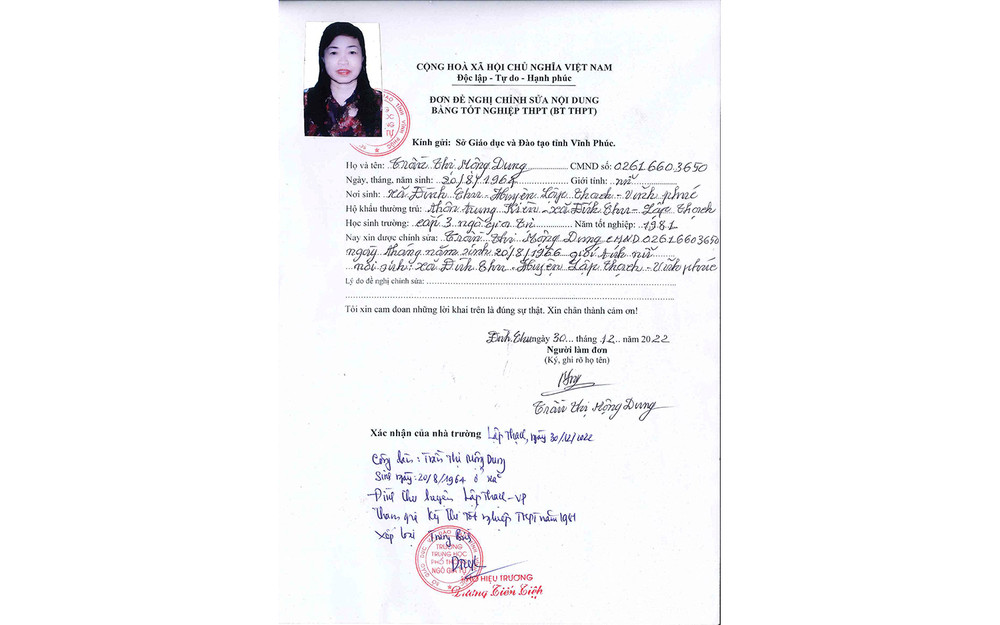 CỘNG HOÀ XÃ HỘI CHỦ NGHĨA VIỆT NAM
Độc lập - Tự do - Hạnh phúc
ĐƠN ĐỀ NGHỊ CHỈNH SỬA NỘI DUNG
BẰNG TỐT NGHIỆP THPT (BT THPT)
Kính gửi: Sở Giáo dục và Đào tạo tỉnh Vĩnh Phúc.
Họ và tên: Trần Thị Mộng Dung CMND số: 02616603650
Ngày, tháng, năm sinh: 20/8/1964 Giới tính: nữ
Nơi sinh: xã Đình Chu - Huyện Lập Thạch - Vĩnh phúc
Hộ khẩu thường trú: thôn trung Kiên - xã Đình Chu - Lập Thạch
Học sinh trường: cấp 3 ngô gia tự Năm tốt nghiệp: 1981
Nay xin được chỉnh sửa: Trần Thị Mộng Dung CMND 02616603650
ngày tháng năm sinh 20/8/1966 giới tính nữ
nơi sinh: xã Đình Chu - Huyện Lập Thạch - Vĩnh phúc
Lý do đề nghị chỉnh sửa:
Tôi xin cam đoan những lời khai trên là đúng sự thật. Xin chân thành cám ơn!
Đình Chu ngày 30 tháng 12 năm 2022
Người làm đơn
(Ký, ghi rõ họ tên)
Trần Thị Mộng Dung
Xác nhận của nhà trường Lập Thạch, ngày 30/12/2022
Công dân: Trần Thị Mộng Dung
Sinh ngày: 20/8/1964 ở xã
Đình Chu huyện Lập Thạch - VP
Tham gia kỳ thi tốt nghiệp THPT năm 1981
Xếp loại Trung Bình
TRƯỜNG
TRUNG HỌC
PHỔ THÔNG
NGÔ GIA TỰ
PHÓ HIỆU TRƯỞNG
Dương Tiến Diện